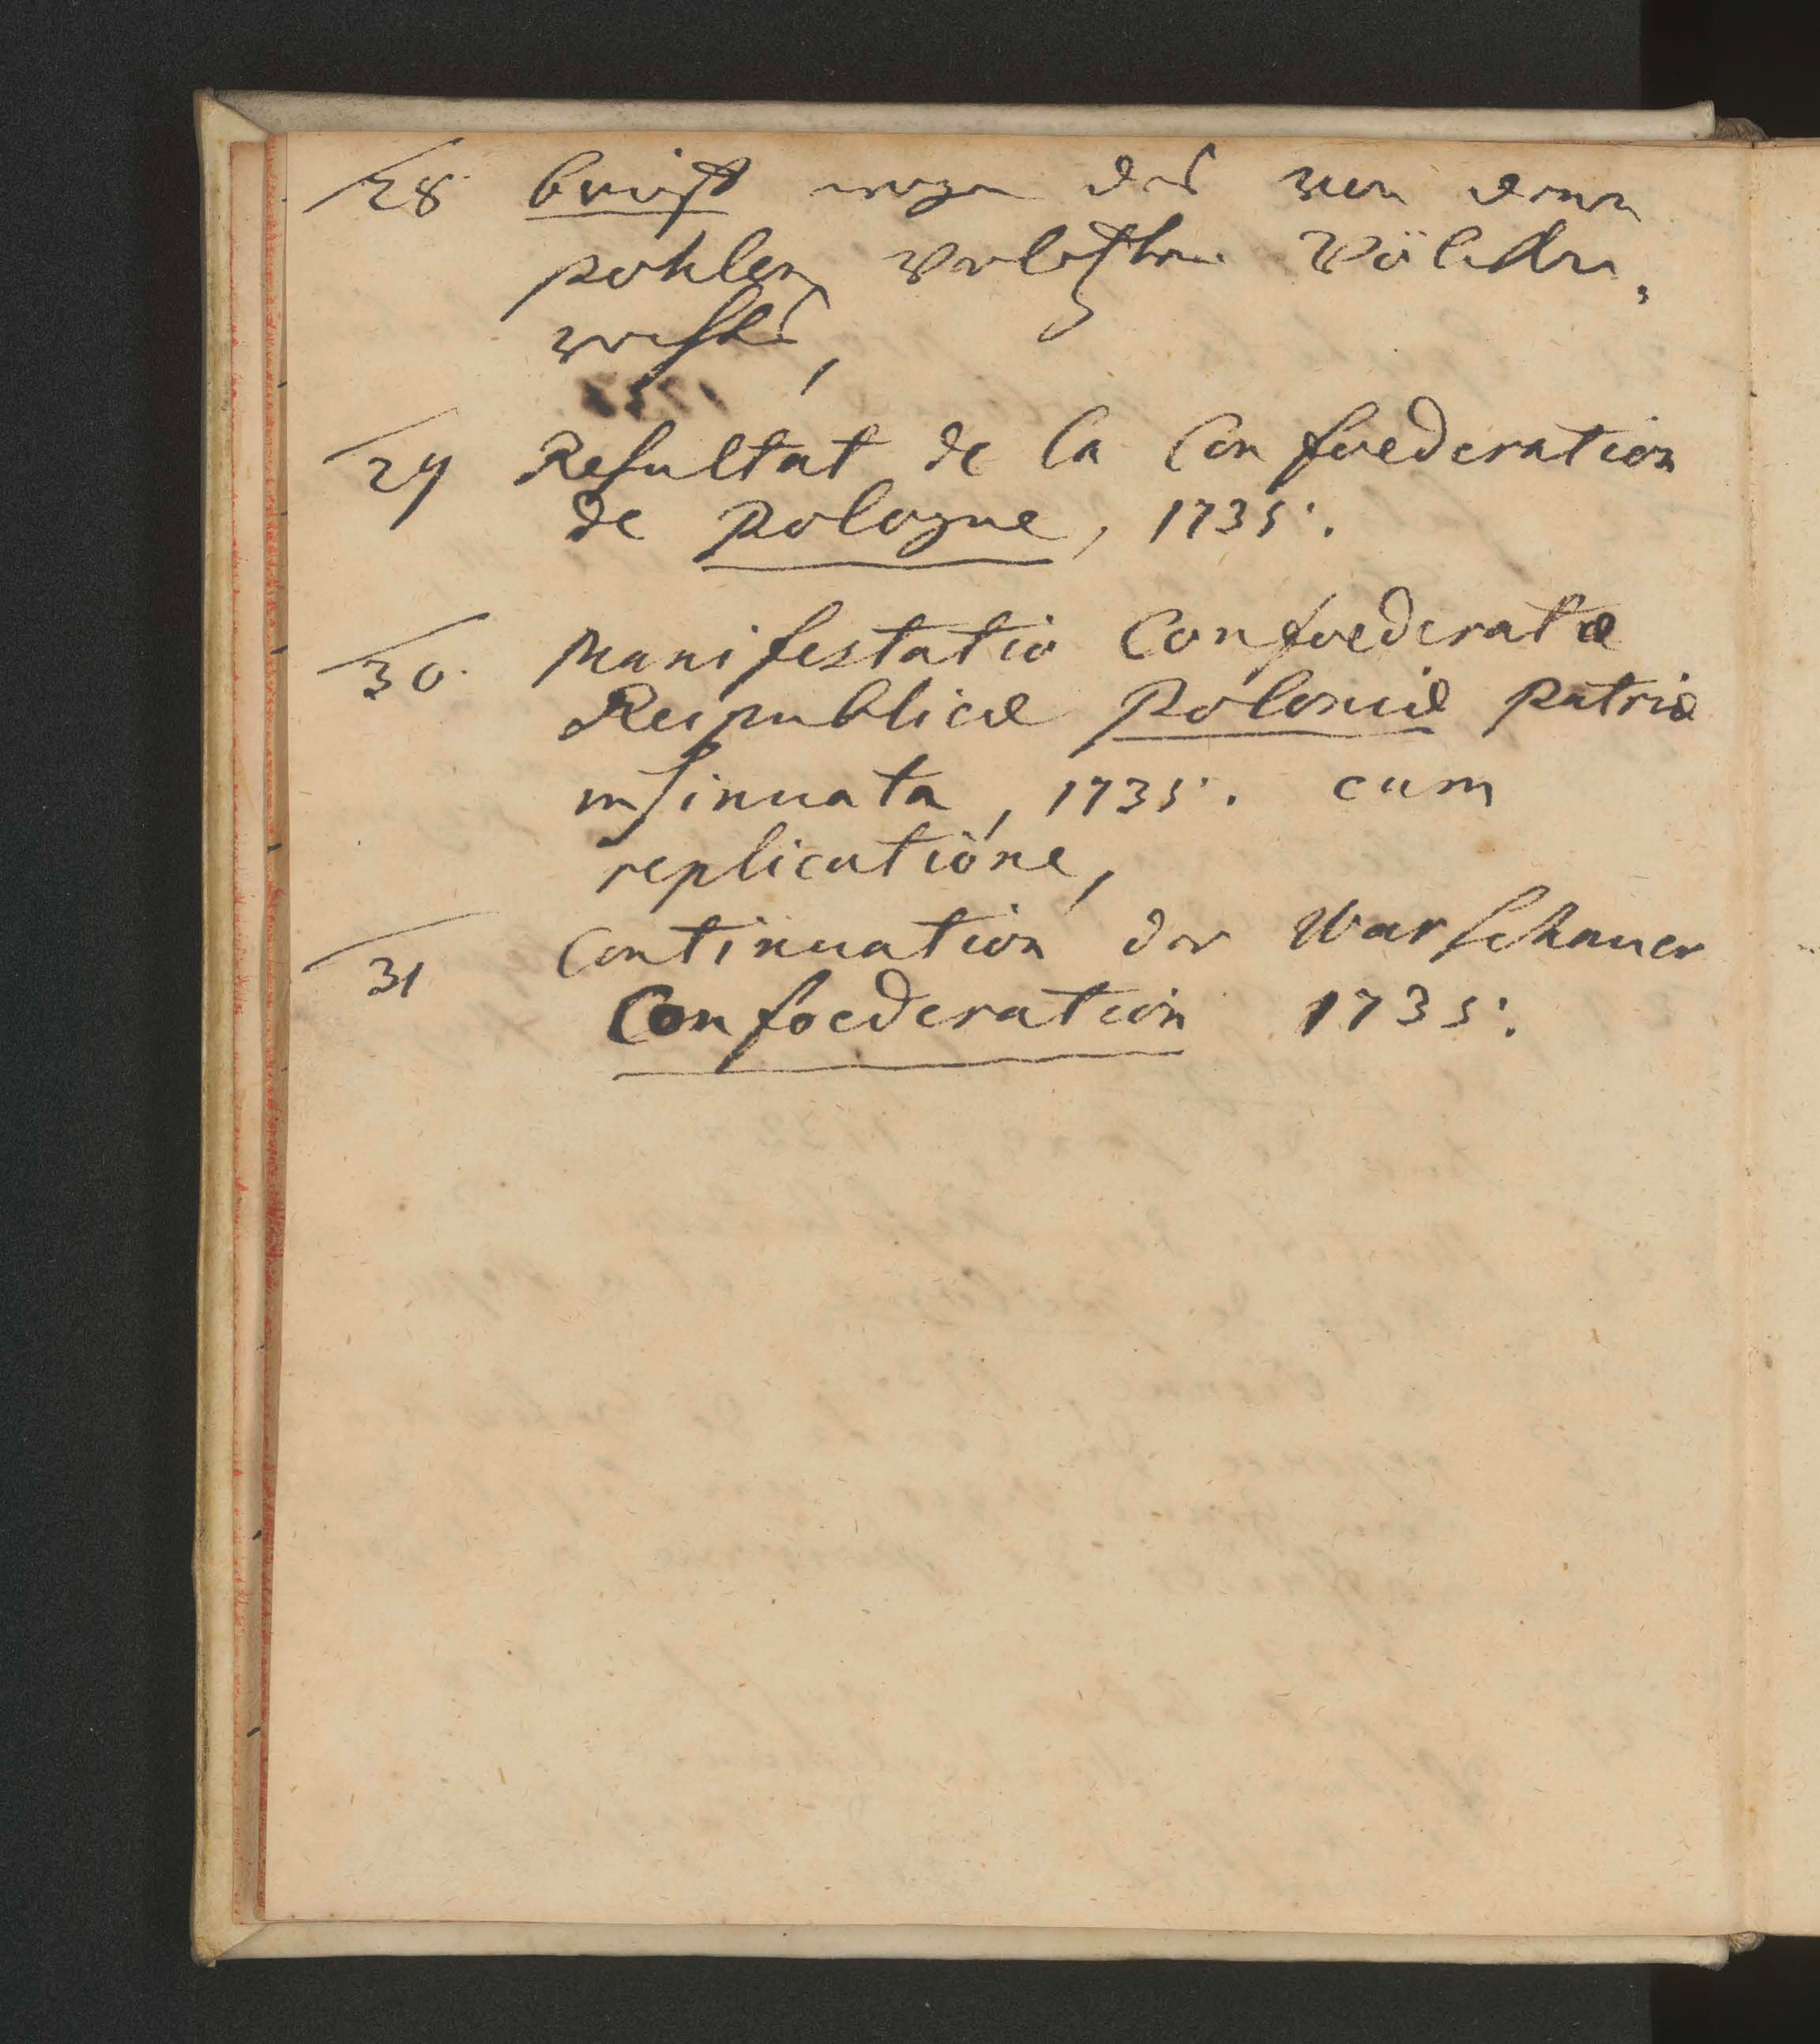 28. brieff wegen des von denen
pohlen verletzten Völcker,
rechts,
29 Resultat de la Confoederation
de pologne, 1735.
30. Manifestatio Confoederatæ
Reipublicæ poloniæ patriæ
insinuata, 1735. cum
replicatione,
31 Continuation der Warschauer
Confoederation 1735.